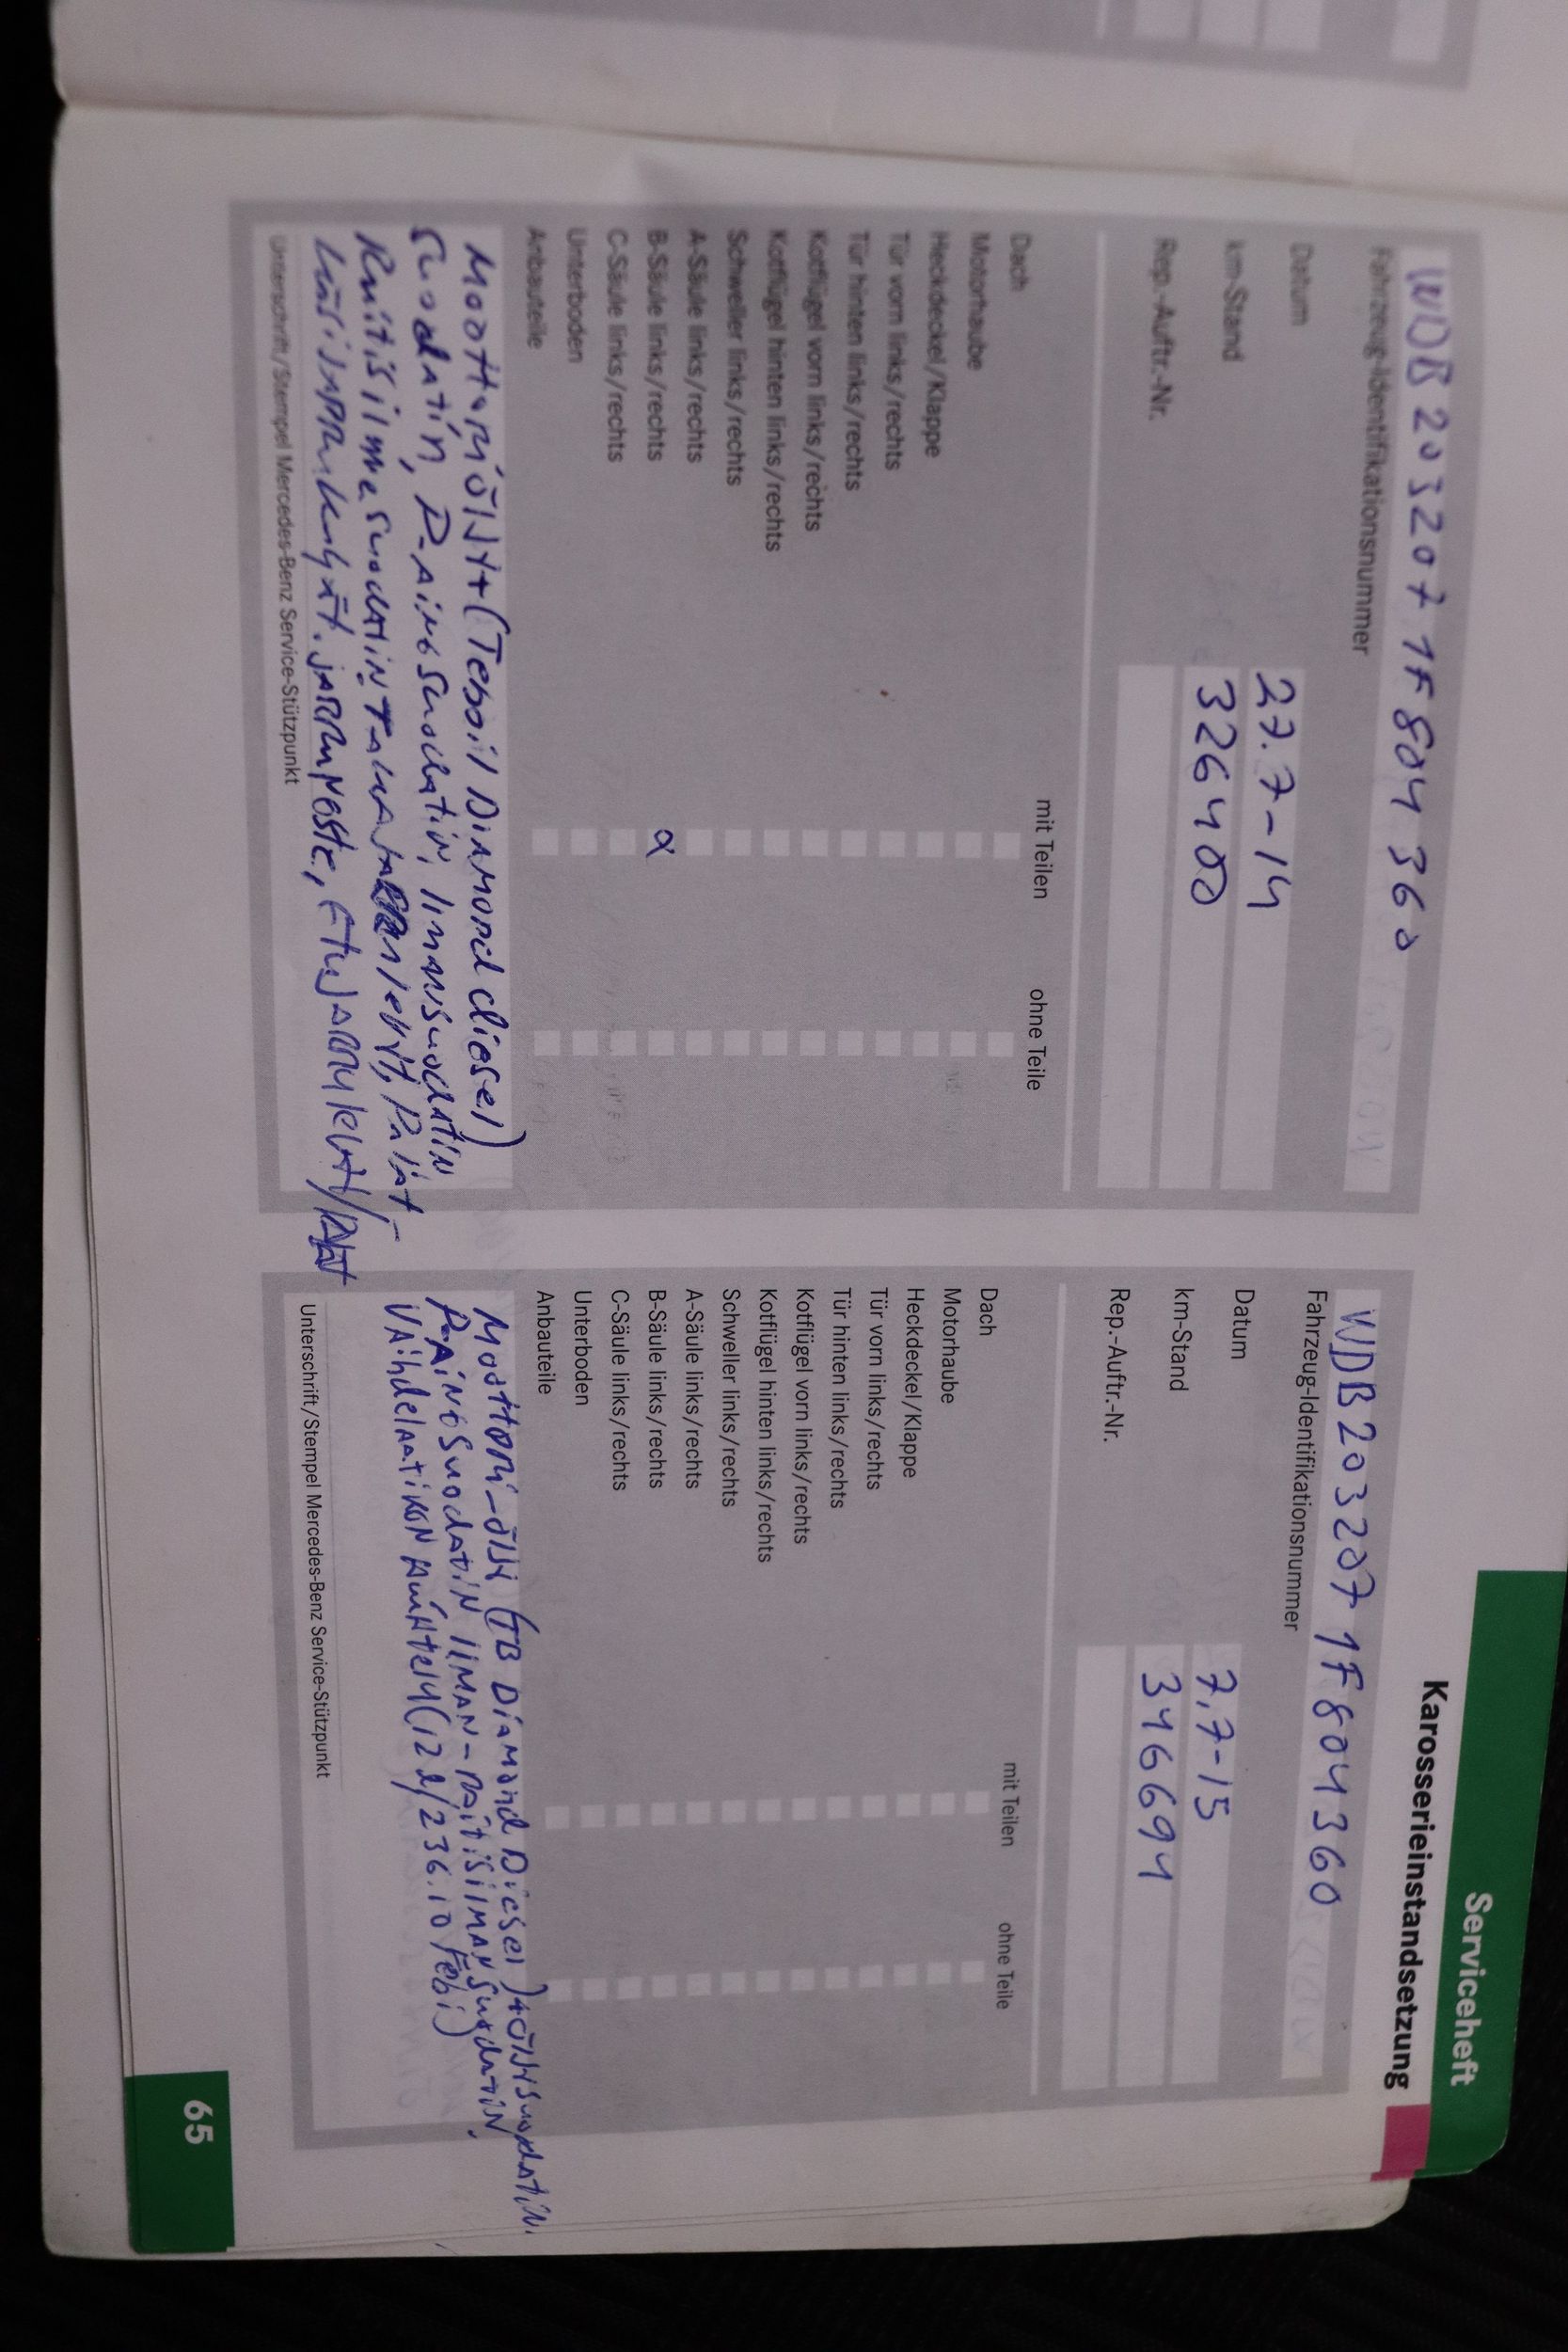 Serviceheft
Karosserieinstandsetzung
WDB 203207 1F804 360
Fahrzeug-Identifikationsnummer
Datum 27.7-14
km-Stand 326400
Rep.-Auftr.-Nr.
mit Teilen ohne Teile
Dach
Motorhaube
Heckdeckel/Klappe
Tür vorn links/rechts
Tür hinten links/rechts
Kotflügel vorn links/rechts
Kotflügel hinten links/rechts
Schweller links/rechts
A-Säule links/rechts
B-Säule links/rechts
C-Säule links/rechts
Unterboden
Anbauteile
Moottoriöljyt (Teboil Diamond diesel)
suodatin, P-aine suodatin, ilmansuodatin
Raitisilmasuodatin
käsijarrukengät. jarruneste, Etujarrulevyt/
Unterschrift/Stempel Mercedes-Benz Service-Stützpunkt
WDB203207 1F804360
Fahrzeug-Identifikationsnummer
Datum 7.7-15
km-Stand 346694
Rep.-Auftr.-Nr.
mit Teilen ohne Teile
Dach
Motorhaube
Heckdeckel/Klappe
Tür vorn links/rechts
Tür hinten links/rechts
Kotflügel vorn links/rechts
Kotflügel hinten links/rechts
Schweller links/rechts
A-Säule links/rechts
B-Säule links/rechts
C-Säule links/rechts
Unterboden
Anbauteile
Moottori-öljy (TB Diamond Diesel) + öljysuodatin.
P-Aine suodatin ilman-raitisilman suodatin,
Vaihdelaatikon huuhtelu (12 l/236.10 Febi)
Unterschrift/Stempel Mercedes-Benz Service-Stützpunkt
65